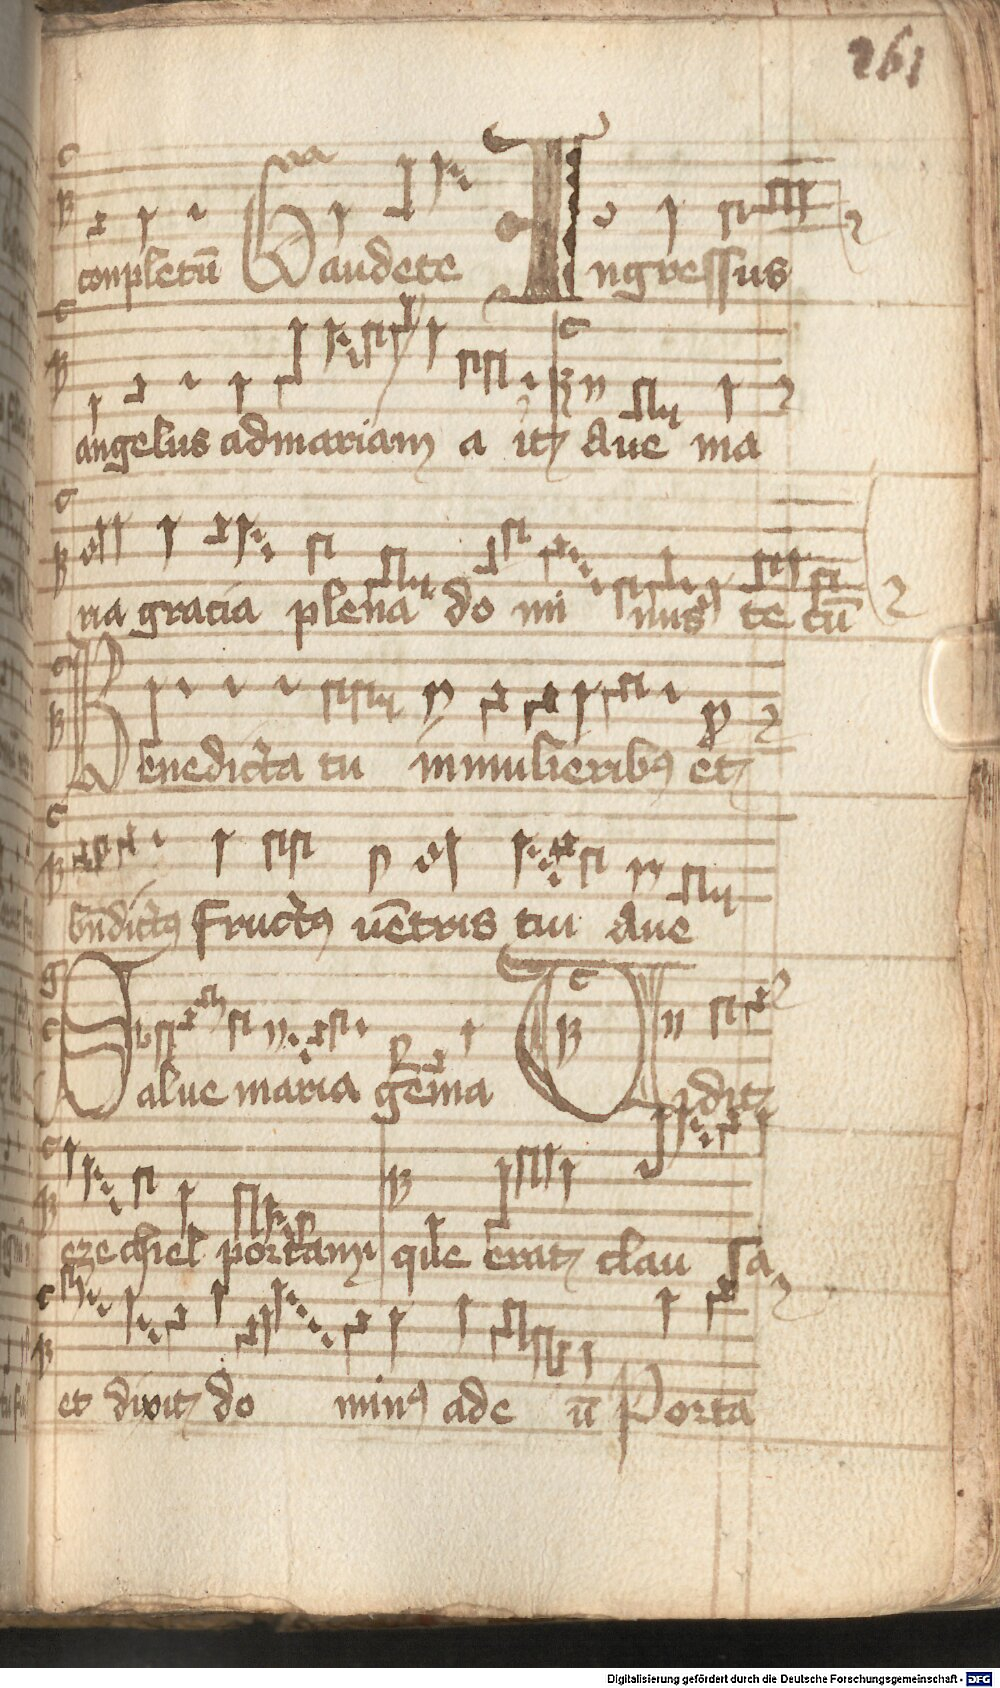 261
conpletū Gaudete Ingressus
angelus admariam a it Aue ma
ria gracia plena do mi nus te cū
Benedicta tu inmulieribꝰ et
bn̄dictꝰ fructꝰ uētris tui Aue
Salue maria gēma
ezechiel portam que erat clau sa
et dixit do minꝰ ade ū Porta
Digitalisierung gefördert durch die Deutsche Forschungsgemeinschaft - DFG